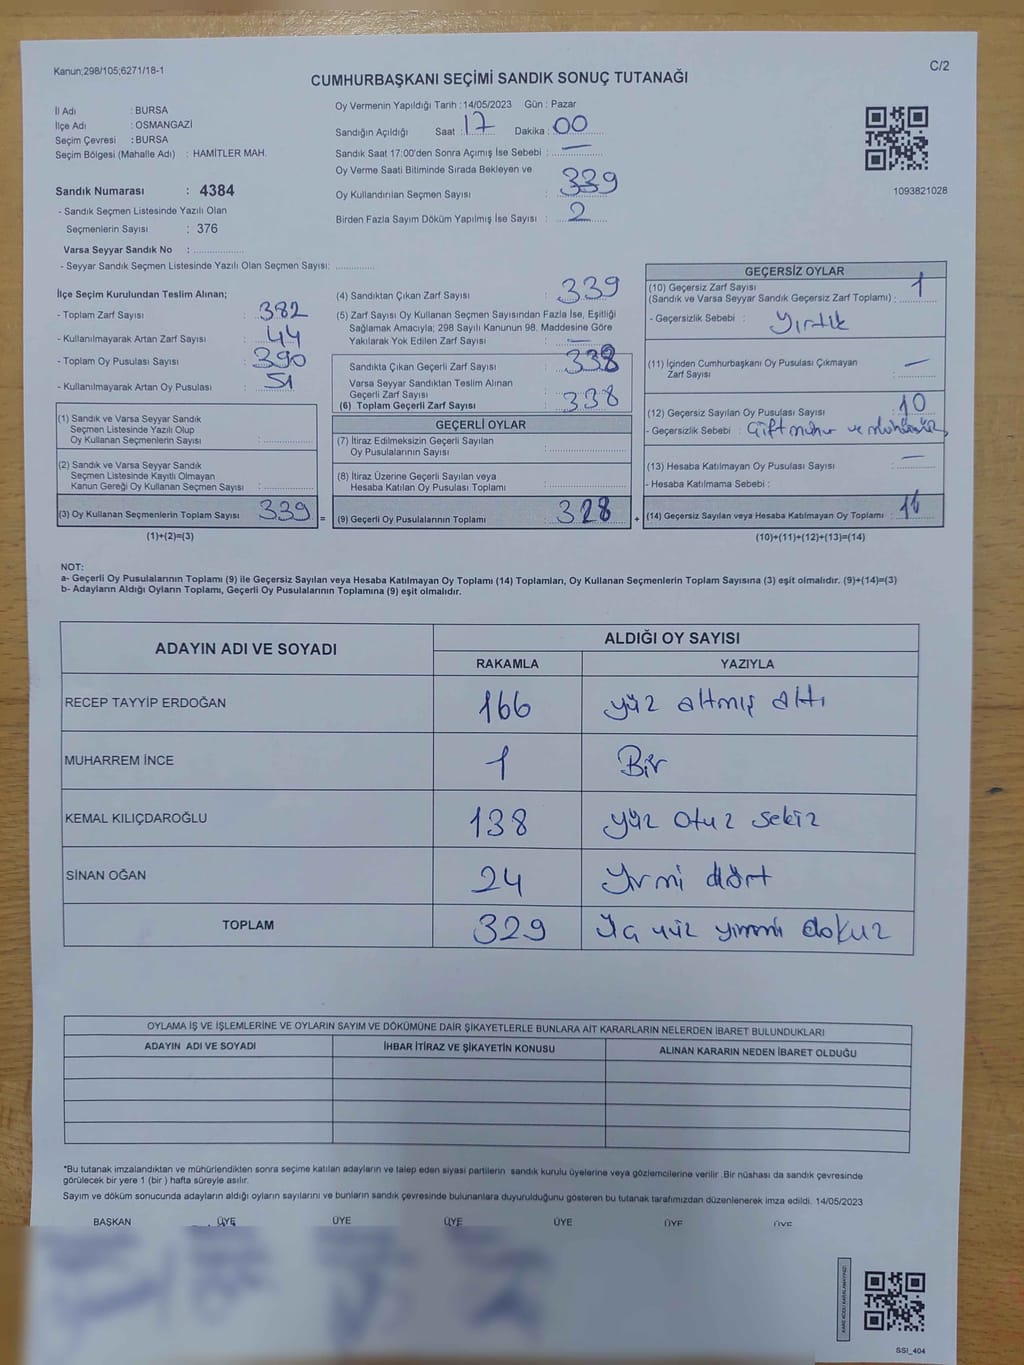 Kanun;298/105;6271/18-1
C/2
CUMHURBAŞKANI SEÇİMİ SANDIK SONUÇ TUTANAĞI
İl Adı : BURSA
İlçe Adı : OSMANGAZİ
Seçim Çevresi : BURSA
Seçim Bölgesi (Mahalle Adı) : HAMİTLER MAH.
Sandık Numarası : 4384
- Sandık Seçmen Listesinde Yazılı Olan
Seçmenlerin Sayısı : 376
Varsa Seyyar Sandık No : ..................
- Seyyar Sandık Seçmen Listesinde Yazılı Olan Seçmen Sayısı: ..............
Oy Vermenin Yapıldığı Tarih : 14/05/2023 Gün : Pazar
Sandığın Açıldığı Saat : 17 Dakika : 00
Sandık Saat 17:00'den Sonra Açımış İse Sebebi : —
Oy Verme Saati Bitiminde Sırada Bekleyen ve
Oy Kullandırılan Seçmen Sayısı : 339
Birden Fazla Sayım Döküm Yapılmış İse Sayısı : 2
1093821028
İlçe Seçim Kurulundan Teslim Alınan;
- Toplam Zarf Sayısı : 382
- Kullanılmayarak Artan Zarf Sayısı : 44
- Toplam Oy Pusulası Sayısı : 390
- Kullanılmayarak Artan Oy Pusulası : 51
(1) Sandık ve Varsa Seyyar Sandık
Seçmen Listesinde Yazılı Olup
Oy Kullanan Seçmenlerin Sayısı : ..............
(2) Sandık ve Varsa Seyyar Sandık
Seçmen Listesinde Kayıtlı Olmayan
Kanun Gereği Oy Kullanan Seçmen Sayısı : ..............
(3) Oy Kullanan Seçmenlerin Toplam Sayısı : 339 =
(1)+(2)=(3)
(4) Sandıktan Çıkan Zarf Sayısı : 339
(5) Zarf Sayısı Oy Kullanan Seçmen Sayısından Fazla İse, Eşitliği
Sağlamak Amacıyla; 298 Sayılı Kanunun 98. Maddesine Göre
Yakılarak Yok Edilen Zarf Sayısı : —
Sandıkta Çıkan Geçerli Zarf Sayısı : 338
Varsa Seyyar Sandıktan Teslim Alınan
Geçerli Zarf Sayısı :
(6) Toplam Geçerli Zarf Sayısı : 338
GEÇERLİ OYLAR
(7) İtiraz Edilmeksizin Geçerli Sayılan
Oy Pusulalarının Sayısı : ..............
(8) İtiraz Üzerine Geçerli Sayılan veya
Hesaba Katılan Oy Pusulası Toplamı : ..............
(9) Geçerli Oy Pusulalarının Toplamı : 328 +
GEÇERSİZ OYLAR
(10) Geçersiz Zarf Sayısı
(Sandık ve Varsa Seyyar Sandık Geçersiz Zarf Toplamı) : 1
- Geçersizlik Sebebi : Yırtık
(11) İçinden Cumhurbaşkanı Oy Pusulası Çıkmayan
Zarf Sayısı : —
(12) Geçersiz Sayılan Oy Pusulası Sayısı : 10
- Geçersizlik Sebebi : Çift mühür ve
(13) Hesaba Katılmayan Oy Pusulası Sayısı : —
- Hesaba Katılmama Sebebi :
(14) Geçersiz Sayılan veya Hesaba Katılmayan Oy Toplamı :
(10)+(11)+(12)+(13)=(14)
NOT:
a- Geçerli Oy Pusulalarının Toplamı (9) ile Geçersiz Sayılan veya Hesaba Katılmayan Oy Toplamı (14) Toplamları, Oy Kullanan Seçmenlerin Toplam Sayısına (3) eşit olmalıdır. (9)+(14)=(3)
b- Adayların Aldığı Oyların Toplamı, Geçerli Oy Pusulalarının Toplamına (9) eşit olmalıdır.
ADAYIN ADI VE SOYADI ALDIĞI OY SAYISI
RAKAMLA YAZIYLA
RECEP TAYYİP ERDOĞAN 166 yüz altmış altı
MUHARREM İNCE 1 Bir
KEMAL KILIÇDAROĞLU 138 yüz otuz sekiz
SİNAN OĞAN 24 Yirmi dört
TOPLAM 329 Üç yüz yirmi dokuz
OYLAMA İŞ VE İŞLEMLERİNE VE OYLARIN SAYIM VE DÖKÜMÜNE DAİR ŞİKAYETLERLE BUNLARA AİT KARARLARIN NELERDEN İBARET BULUNDUKLARI
ADAYIN ADI VE SOYADI İHBAR İTİRAZ VE ŞİKAYETİN KONUSU ALINAN KARARIN NEDEN İBARET OLDUĞU
*Bu tutanak imzalandıktan ve mühürlendikten sonra seçime katılan adayların ve talep eden siyasi partilerin sandık kurulu üyelerine veya gözlemcilerine verilir .Bir nüshası da sandık çevresinde
görülecek bir yere 1 (bir ) hafta süreyle asılır.
Sayım ve döküm sonucunda adayların aldığı oyların sayılarını ve bunların sandık çevresinde bulunanlara duyurulduğunu gösteren bu tutanak tarafımızdan düzenlenerek imza edildi. 14/05/2023
BAŞKAN ÜYE ÜYE ÜYE ÜYE ÜYE ÜYE
SSI_404